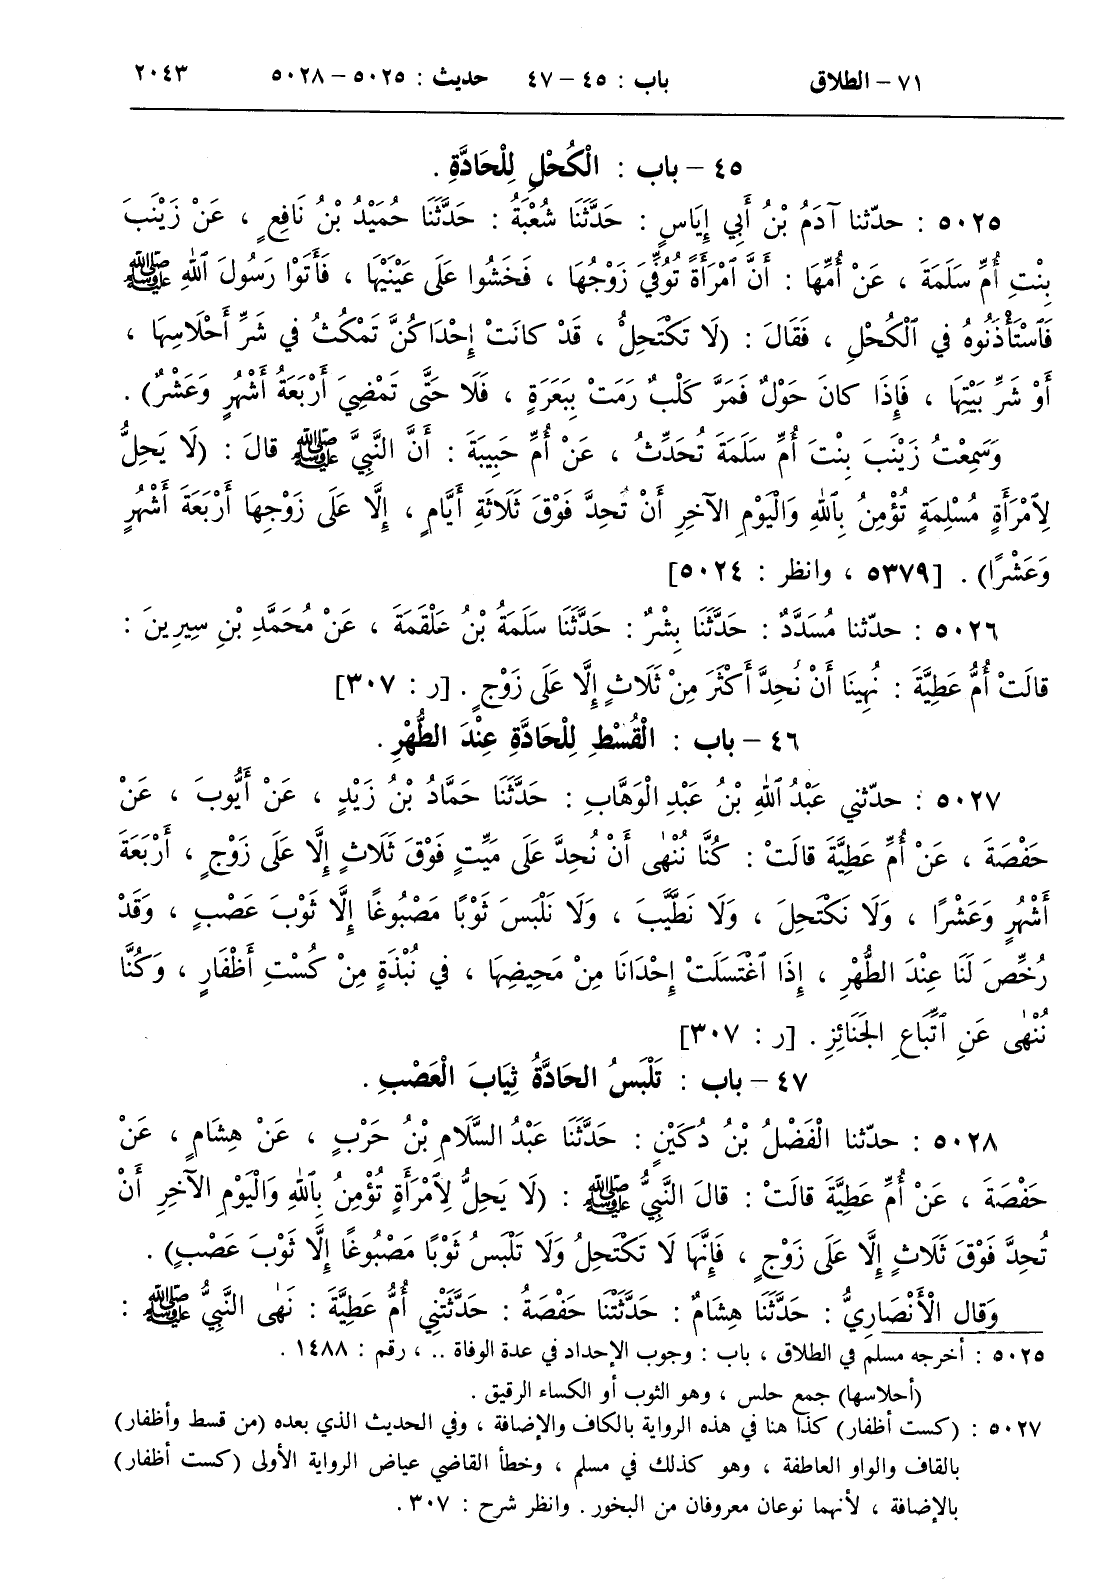 ٧١ – الطلاق باب : ٤٥ – ٤٧ حديث : ٥٠٢٥ – ٥٠٢٨ ٢٠٤٣
٤٥ – باب : الْكُحْلِ لِلْحَادَّةِ .
٥٠٢٥ : حدّثنا آدَمُ بْنُ أَبِي إِيَاسٍ : حَدَّثَنَا شُعْبَةُ : حَدَّثَنَا حُمَيْدُ بْنُ نَافِعٍ ، عَنْ زَيْنَبَ
بِنْتِ أُمِّ سَلَمَةَ ، عَنْ أُمِّهَا : أَنَّ ٱمْرَأَةً تُوُفِّيَ زَوْجُهَا ، فَخَشُوا عَلَى عَيْنَيْهَا ، فَأَتَوْا رَسُولَ ٱللهِ ﷺ
فَٱسْتَأْذَنُوهُ فِي ٱلْكُحْلِ ، فَقَالَ : (لَا تَكْتَحِلْ ، قَدْ كانَتْ إِحْدَاكُنَّ تَمْكُثُ في شَرِّ أَحْلَاسِهَا ،
أَوْ شَرِّ بَيْتِهَا ، فَإِذَا كانَ حَوْلٌ فَمَرَّ كَلْبٌ رَمَتْ بِبَعَرَةٍ ، فَلَا حَتَّى تَمْضِيَ أَرْبَعَةُ أَشْهُرٍ وَعَشْرٌ) .
وَسَمِعْتُ زَيْنَبَ بِنْتَ أُمِّ سَلَمَةَ تُحَدِّثُ ، عَنْ أُمِّ حَبِيبَةَ : أَنَّ النَّبِيَّ ﷺ قالَ : (لَا يَحِلُّ
لِٱمْرَأَةٍ مُسْلِمَةٍ تُؤْمِنُ بِٱللهِ وَالْيَوْمِ الآخِرِ أَنْ تُحِدَّ فَوْقَ ثَلَاثَةِ أَيَّامٍ ، إِلَّا عَلَى زَوْجِهَا أَرْبَعَةَ أَشْهُرٍ
وَعَشْرًا) . [٥٣٧٩ ، وانظر : ٥٠٢٤]
٥٠٢٦ : حدّثنا مُسَدَّدٌ : حَدَّثَنَا بِشْرٌ : حَدَّثَنَا سَلَمَةُ بْنُ عَلْقَمَةَ ، عَنْ مُحَمَّدِ بْنِ سِيرِينَ :
قالَتْ أُمُّ عَطِيَّةَ : نُهِينَا أَنْ نُحِدَّ أَكْثَرَ مِنْ ثَلَاثٍ إِلَّا عَلَى زَوْجٍ . [ر : ٣٠٧]
٤٦ – باب : الْقُسْطِ لِلْحَادَّةِ عِنْدَ الطُّهْرِ .
٥٠٢٧ : حدّثني عَبْدُ ٱللهِ بْنُ عَبْدِ الْوَهَّابِ : حَدَّثَنَا حَمَّادُ بْنُ زَيْدٍ ، عَنْ أَيُّوبَ ، عَنْ
حَفْصَةَ ، عَنْ أُمِّ عَطِيَّةَ قالَتْ : كُنَّا نُنْهٰى أَنْ نُحِدَّ عَلَى مَيِّتٍ فَوْقَ ثَلَاثٍ إِلَّا عَلَى زَوْجٍ ، أَرْبَعَةَ
أَشْهُرٍ وَعَشْرًا ، وَلَا نَكْتَحِلَ ، وَلَا نَطَّيَّبَ ، وَلَا نَلْبَسَ ثَوْبًا مَصْبُوغًا إِلَّا ثَوْبَ عَصْبٍ ، وَقَدْ
رُخِّصَ لَنَا عِنْدَ الطُّهْرِ ، إِذَا ٱغْتَسَلَتْ إِحْدَانَا مِنْ مَحِيضِهَا ، في نُبْذَةٍ مِنْ كُسْتِ أَظْفَارٍ ، وَكُنَّا
نُنْهٰى عَنِ ٱتِّبَاعِ الْجَنَائِزِ . [ر : ٣٠٧]
٤٧ – باب : تَلْبَسُ الحَادَّةُ ثِيَابَ الْعَصْبِ .
٥٠٢٨ : حدّثنا الْفَضْلُ بْنُ دُكَيْنٍ : حَدَّثَنَا عَبْدُ السَّلَامِ بْنُ حَرْبٍ ، عَنْ هِشَامٍ ، عَنْ
حَفْصَةَ ، عَنْ أُمِّ عَطِيَّةَ قالَتْ : قالَ النَّبِيُّ ﷺ : (لَا يَحِلُّ لِٱمْرَأَةٍ تُؤْمِنُ بِٱللهِ وَالْيَوْمِ الآخِرِ أَنْ
تُحِدَّ فَوْقَ ثَلَاثٍ إِلَّا عَلَى زَوْجٍ ، فَإِنَّهَا لَا تَكْتَحِلُ وَلَا تَلْبَسُ ثَوْبًا مَصْبُوغًا إِلَّا ثَوْبَ عَصْبٍ) .
وَقال الْأَنْصَارِيُّ : حَدَّثَنَا هِشَامٌ : حَدَّثَتْنَا حَفْصَةُ : حَدَّثَتْنِي أُمُّ عَطِيَّةَ : نَهٰى النَّبِيُّ ﷺ :
٥٠٢٥ : أخرجه مسلم في الطلاق ، باب : وجوب الإحداد في عدة الوفاة .. ، رقم : ١٤٨٨ .
(أحلاسها) جمع حلس ، وهو الثوب أو الكساء الرقيق .
٥٠٢٧ : (كست أظفار) كذا هنا في هذه الرواية بالكاف والإضافة ، وفي الحديث الذي بعده (من قسط وأظفار)
بالقاف والواو العاطفة ، وهو كذلك في مسلم ، وخطأ القاضي عياض الرواية الأولى (كست أظفار)
بالإضافة ، لأنهما نوعان معروفان من البخور . وانظر شرح : ٣٠٧ .